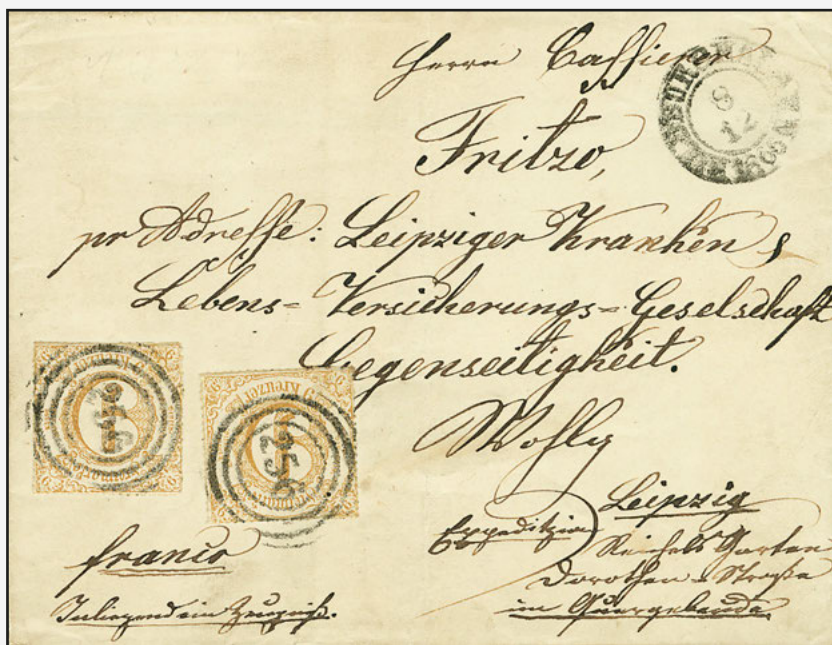 Herrn Cassierer
Fritzo,
pr Adresse: Leipziger Kranken &
Lebens-Versicherungs-Gesellschaft
Gegenseitigkeit.
Leipzig
Expedition
Reichels Garten
Dorotheen-Straße
im Quergebäude
franco
Inliegend ein Zeugniß.
8
12
Kreuzer
256
256